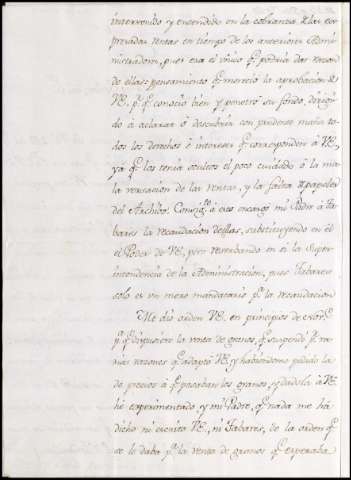 intervenido y entendido en la cobranza de las ex-
presadas rentas en tiempo de los anteriores Admi-
nistradores, pues era el único qe podria dar razon
de ellas: pensamiento qe mereció la aprobacion de
VE, pr qe conoció bien y penetró su fondo, dirigi-
do á aclarar ó descubrir con prudente maña to-
dos los derechos é intereses qe corresponden á VE,
ya qe los tenia ocultos el poco cuidado ó la ma-
la versacion de las rentas, y la falta de papeles
del Archibo. Consigte á este encargo mi Padre á Ta-
bares la recaudacion dellas, substituyendo en él
el Poder de VE, pero reserbando en sí la Super-
intendencia de la Administracion, pues Tabares
solo es un mero mandatario pa la recaudacion
Me dió orden VE, en principios de
pa qe dispusiera la venta de granos, qe suspendí pr va-
rias razones qe adaptó VE, y habiendome pedido la
de precios á qe pasaban los granos, y dadola á VE
hé experimentado, y mi Padre, qe nada me há
dicho ni escrito VE, ni Tabares, de la orden qe
se le daba pa la venta de granos qe esperaba